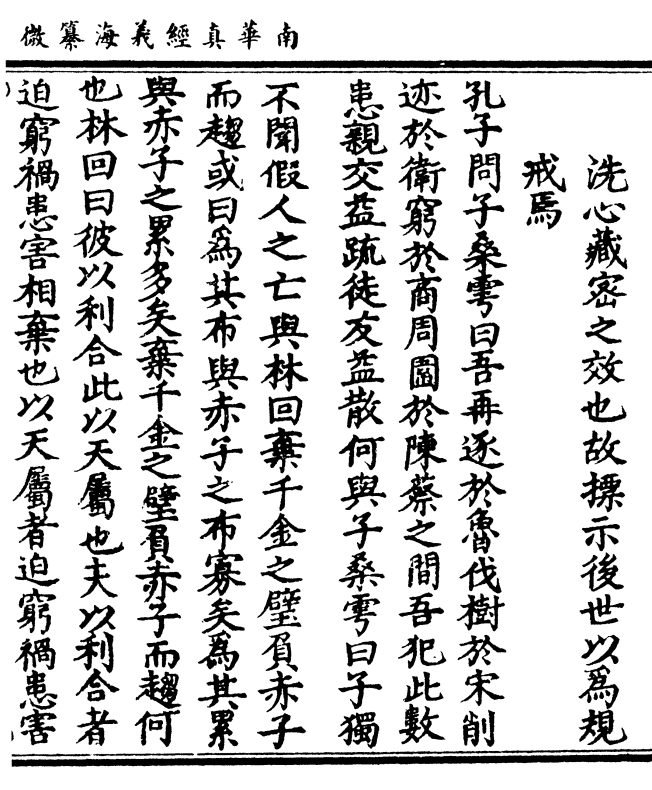 南華真經義海纂微
洗心藏密之效也故摽示後世以爲規
戒焉
孔子問子桑雽曰吾再逐於魯伐樹於宋削
迹於衛窮於商周圍於陳蔡之間吾犯此數
患親交益疏徒友益散何與子桑雽曰子獨
不聞假人之亡與林回棄千金之璧負赤子
而趨或曰爲其布與赤子之布寡矣爲其累
與赤子之累多矣棄千金之璧負赤子而趨何
也林回曰彼以利合此以天屬也夫以利合者
迫窮禍患害相棄也以天屬者迫窮禍患害